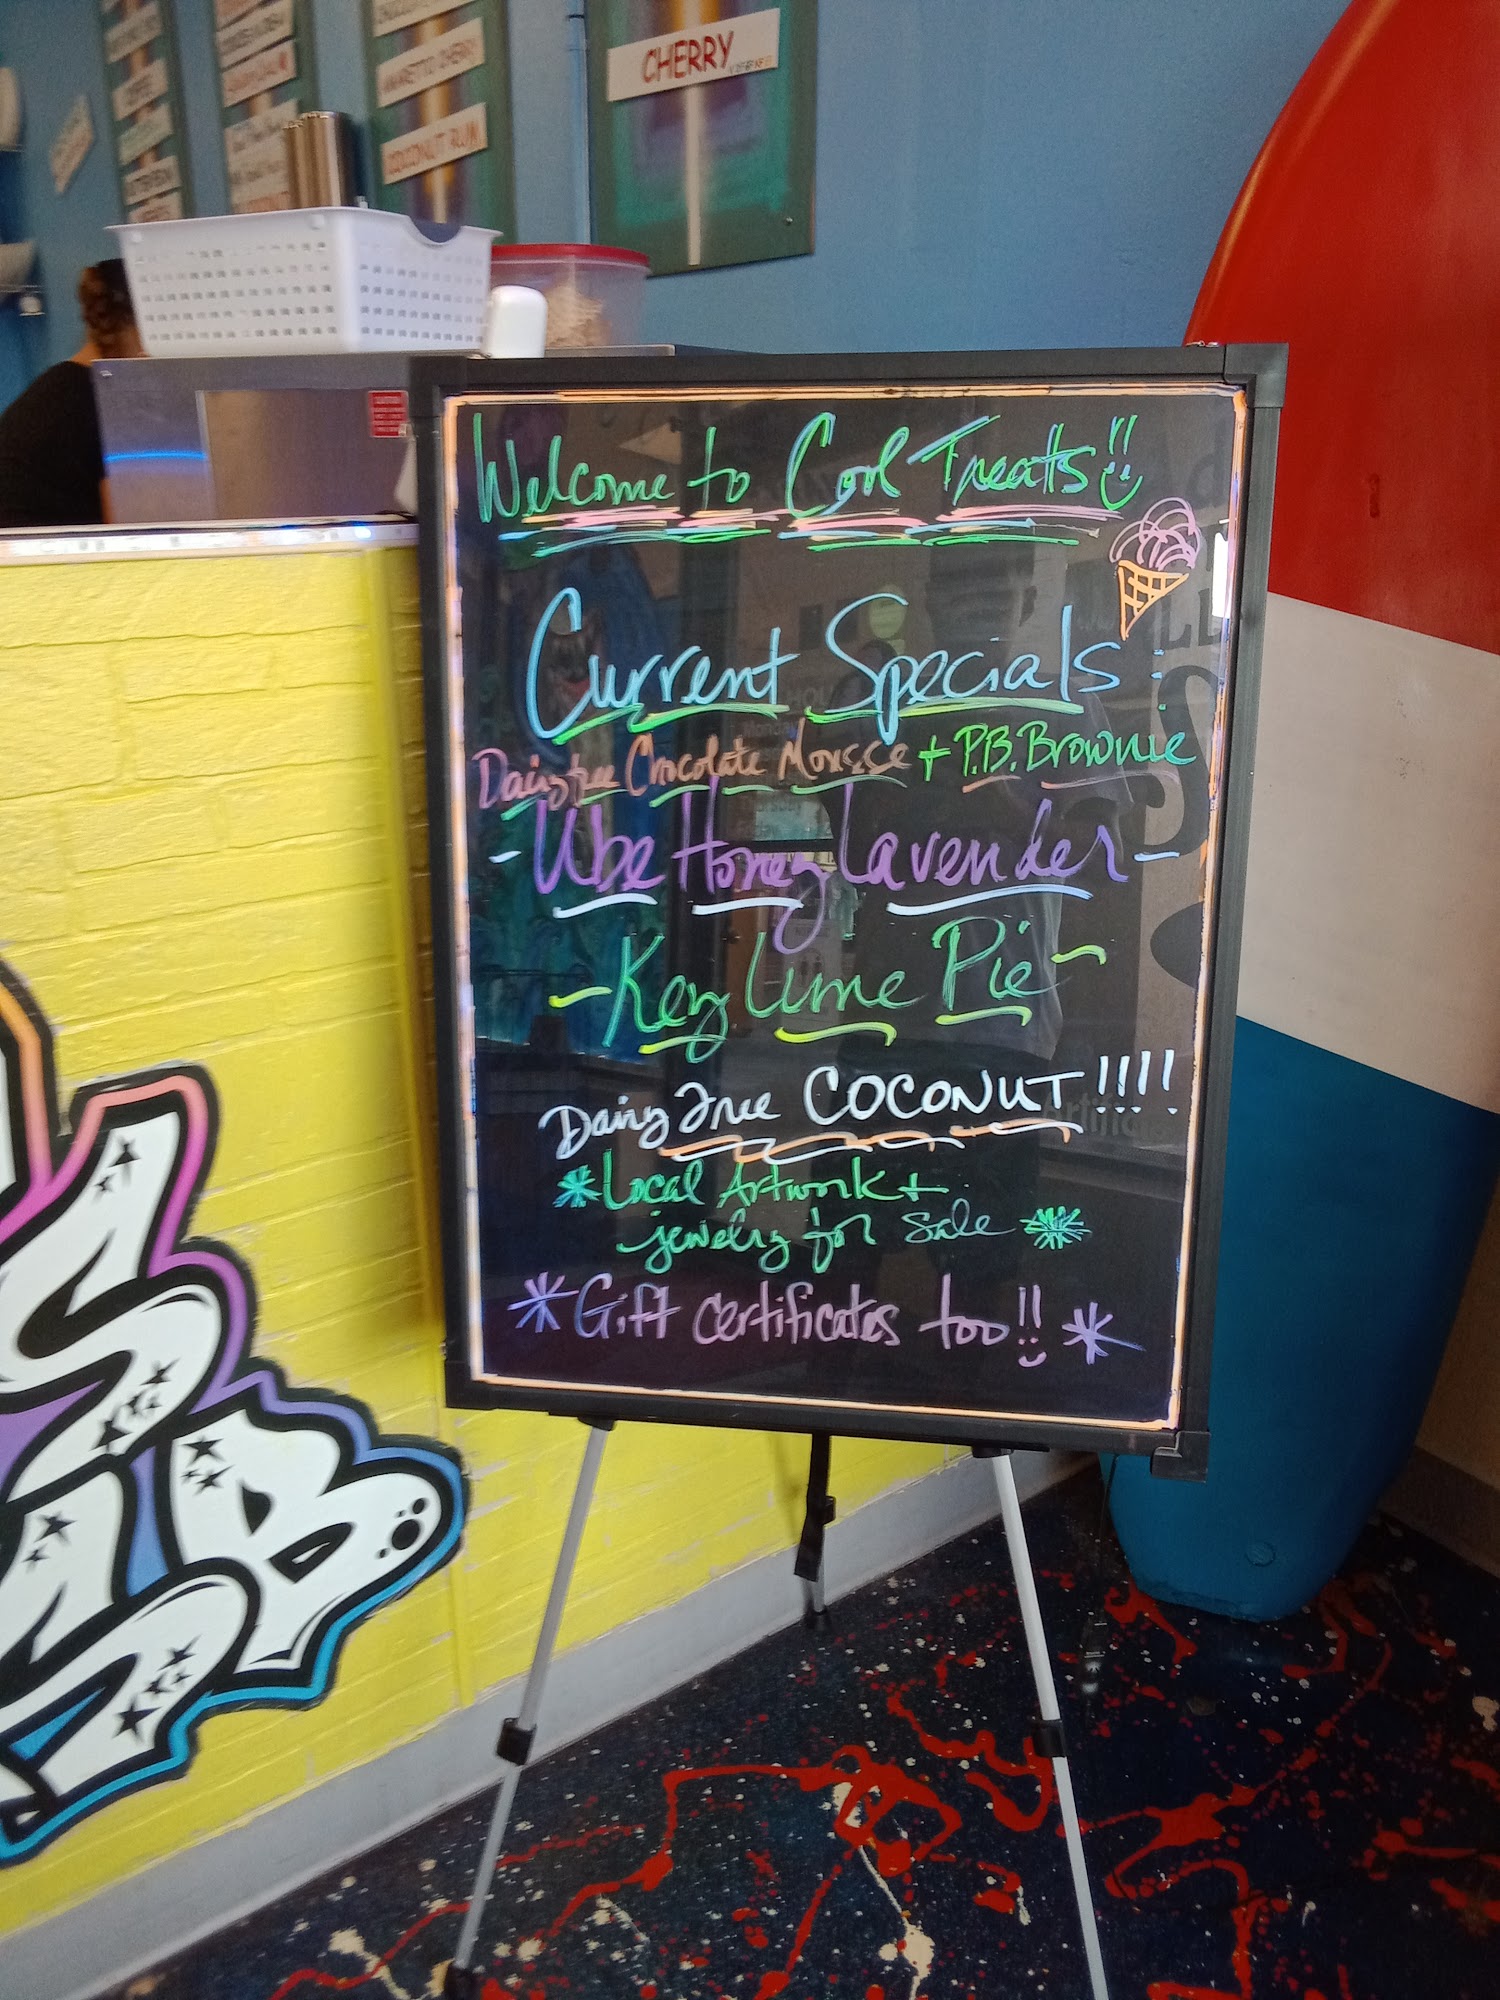 CHERRY
AMARETTO CHERRY
COCONUT RUM
Welcome to Cool Treats!!
Current Specials:
Dairy free Chocolate Mousse + P.B. Brownie
- Ube Honey Lavender -
- Key Lime Pie ~
Dairy Free COCONUT!!!!
* Local Artwork +
jewelry for sale *
* Gift certificates too!! *